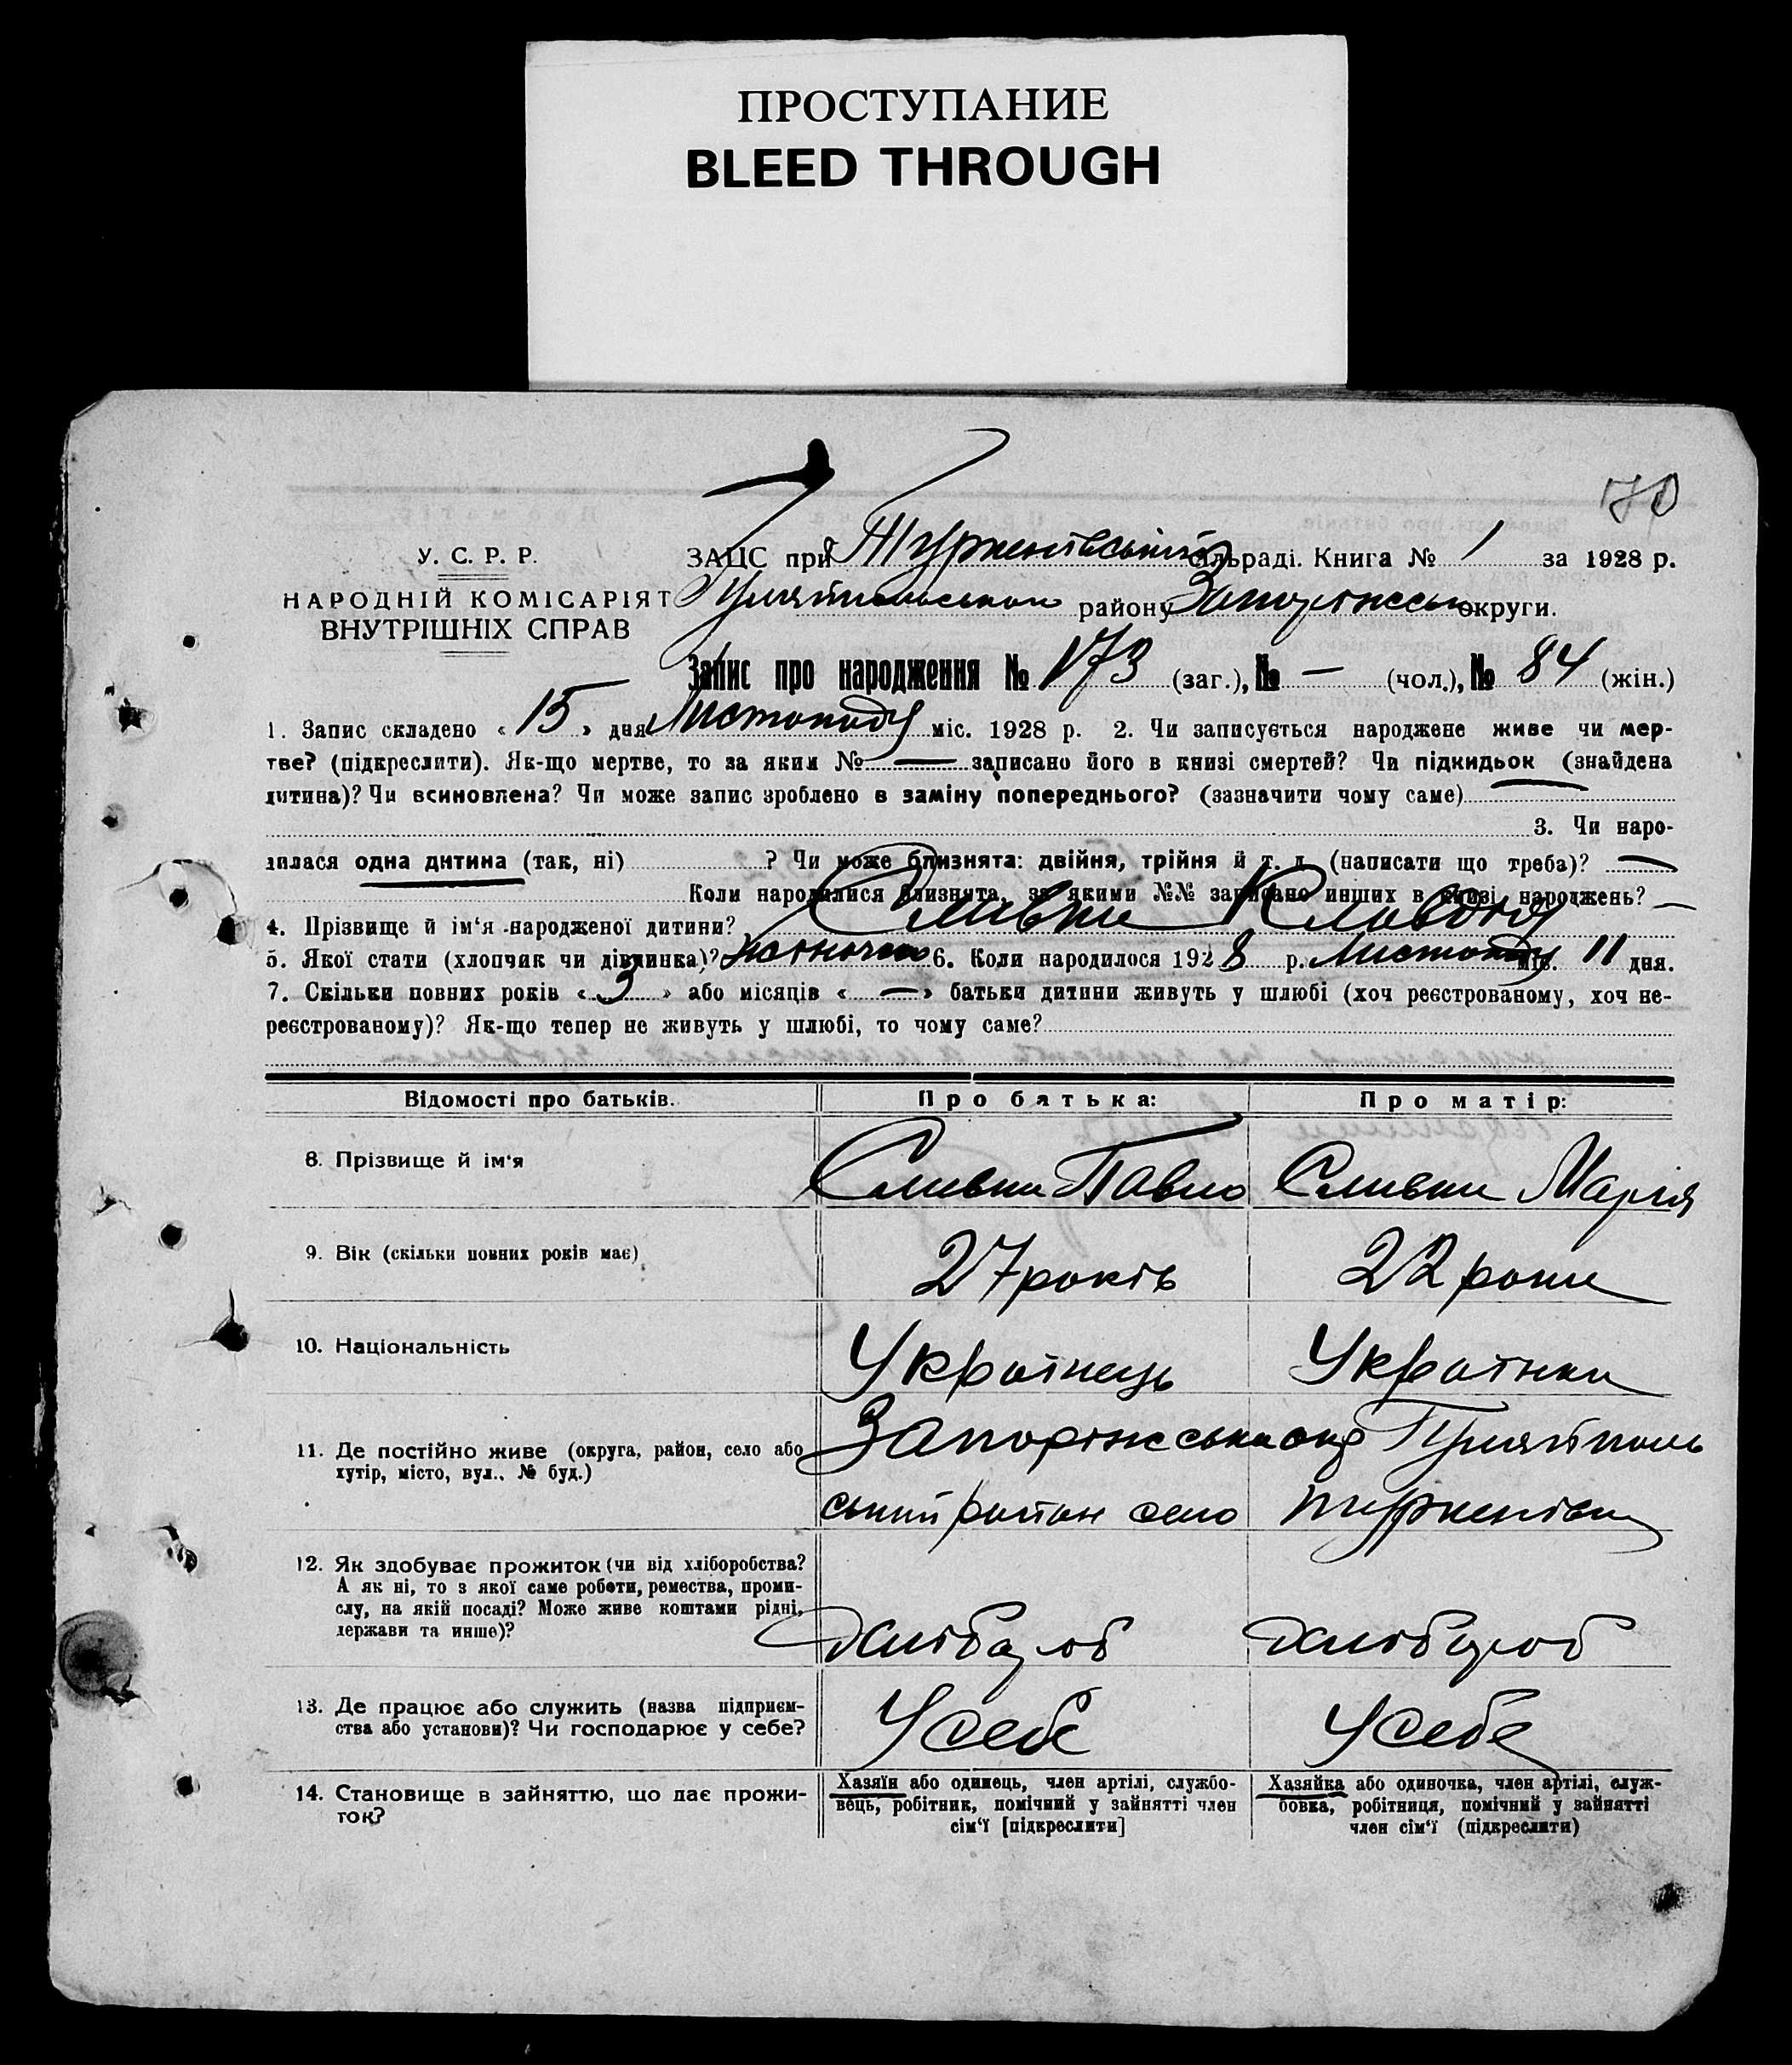 ПРОСТУПАНИЕ
BLEED THROUGH
170
У. С. Р. Р.
НАРОДНІЙ КОМІСАРІЯТ
ВНУТРІШНІХ СПРАВ
ЗАЦС при Туркенівській сільраді. Книга № 1 за 1928 р.
Гуляйпольського району Запоріжськ округи.
Запис про народження № 173 (заг.), № — (чол.), № 84 (жін.)
1. Запис складено « 15 » дня Листопаду міс. 1928 р. 2. Чи записується народжене живе чи мер-
тве? (підкреслити). Як-що мертве, то за яким № — записано його в книзі смертей? Чи підкидьок (знайдена
дитина)? Чи всиновлена? Чи може запис зроблено в заміну попереднього? (зазначити чому саме)
3. Чи наро-
дилася одна дитина (так, ні) ? Чи може близнята: двійня, трійня й т. д. (написати що треба)? —
Коли народилися близнята, за якими №№ записано инших в книзі народжень? —
4. Прізвище й ім‘я народженої дитини? Сливка Клавдія
5. Якої стати (хлопчик чи дівчинка)? жіночої 6. Коли народилося 1928 р. Листопаду міс. 11 дня.
7. Скільки повних років « 3 » або місяців « — » батьки дитини живуть у шлюбі (хоч реєстрованому, хоч не-
реєстрованому)? Як-що тепер не живуть у шлюбі, то чому саме?
Відомості про батьків. Про батька: Про матір:
8. Прізвище й ім‘я Сливка Павло Сливка Марія
9. Вік (скільки повних років має) 27 років 22 роки
10. Національність Українець Українка
11. Де постійно живе (округа, район, село або
хутір, місто, вул., № буд.)
Запоріжська окр Гуляйполь
ський район село Туркенівка
12. Як здобуває прожиток (чи від хліборобства?
А як ні, то з якої саме роботи, ремества, проми-
слу, на якій посаді? Може живе коштами рідні,
держави та инше)?
хлібороб хлібороб
13. Де працює або служить (назва підприєм-
ства або установи)? Чи господарює у себе?
У себе У себе
14. Становище в зайняттю, що дає прожи-
ток?
Хазяїн або одинець, член артілі, службо-
вець, робітник, помічний у зайнятті член
сім‘ї [підкреслити]
Хазяйка або одиночка, член артілі, служ-
бовка, робітниця, помічний у зайнятті
член сім‘ї (підкреслити)